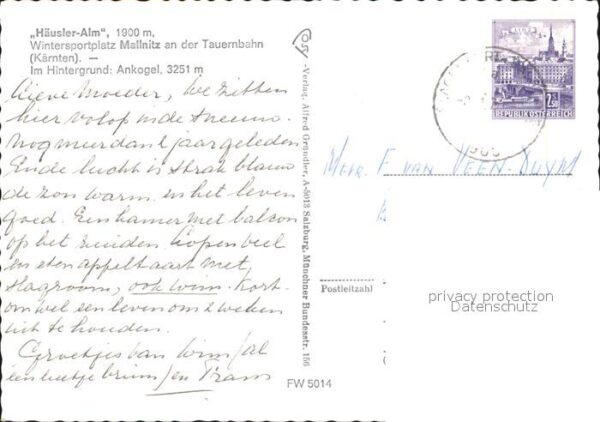 „Häusler-Alm", 1900 m,
Wintersportplatz Mallnitz an der Tauernbahn
(Kärnten). —
Im Hintergrund: Ankogel, 3251 m
Lieve Moeder, we zitten
hier volop in de sneeuw.
nog meer dan 2 jaar geleden
En de lucht is strak blauw
de zon warm. en het leven
goed. Een kamer met balcon
op het zuiden. Lopen veel
en eten appeltaart met
slagroom, ook Wim. Kort-
om wel een leven om 2 weken
uit te houden.
Groetjes van Wim/al
een beetje bruin/en Frans
-Verlag, Alfred Grundler, A-5013 Salzburg, Münchner Bundesstr. 156
FW 5014
REPUBLIK ÖSTERREICH
Mevr. F. van Veen-Duym
Postleitzahl
privacy protection
Datenschutz